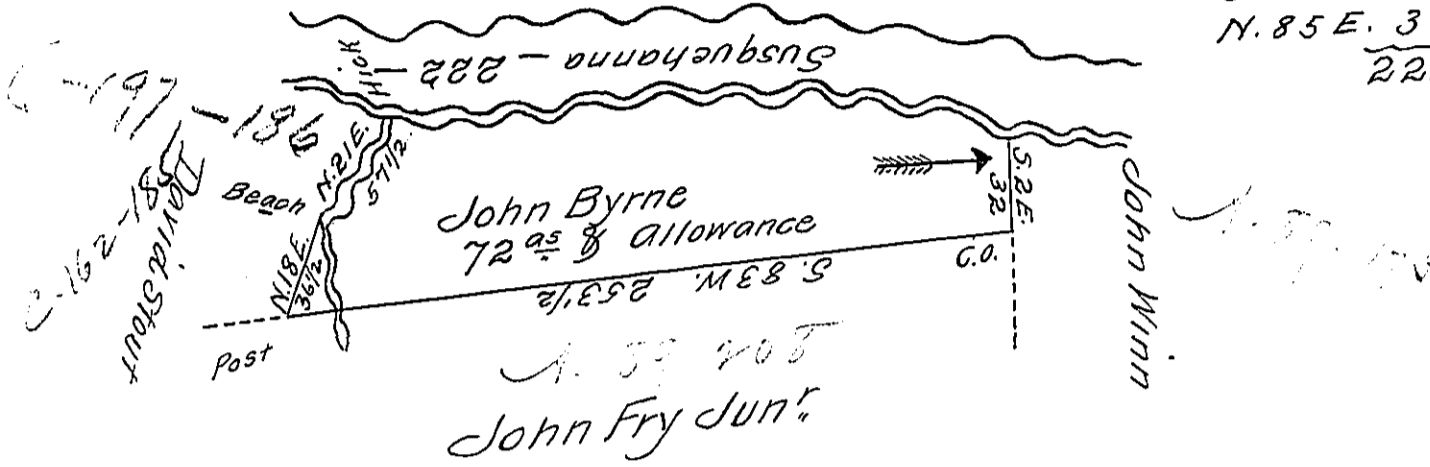 N. 85 E. 3
22
Susquehanna - 222 -
Hick
C-197-186
C-162-185
David Stout
Beach
N. 21 E.
57 1/2
N. 18 E.
36 1/2
John Byrne
72 as & allowance
S. 83 W. 253 1/2
S. 2 E.
32
C.O.
John Winn
Post
John Fry Junr.